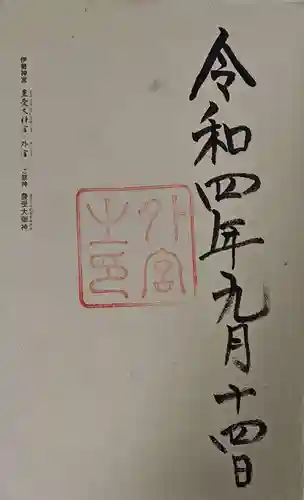 令和四年九月十四日
外宮之印
伊勢神宮 豊受大神宮・外宮 ご祭神 豊受大御神